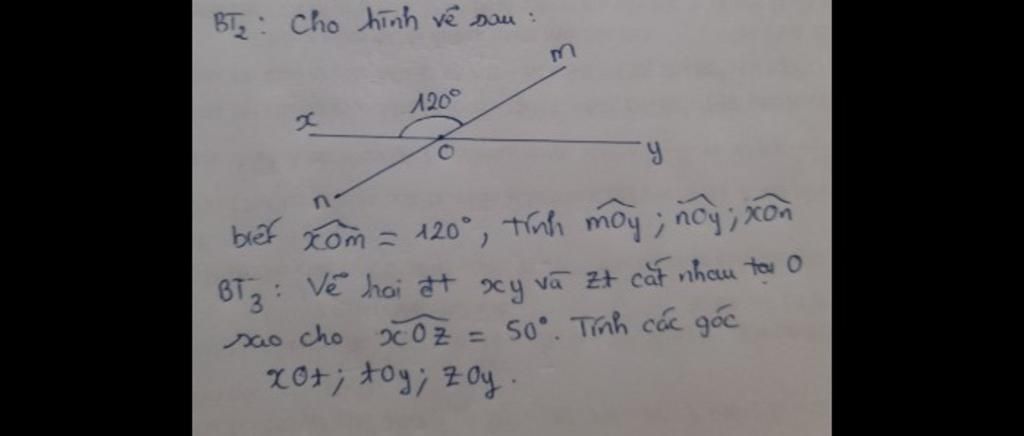 BT2: Cho hình vẽ sau:
m
120°
x
O
y
n
biết xOm = 120°, tính mOy; nOy; xOn
BT3: Vẽ hai đt xy và zt cắt nhau tại O
sao cho xOz = 50°. Tính các góc
xOt; tOy; zOy.